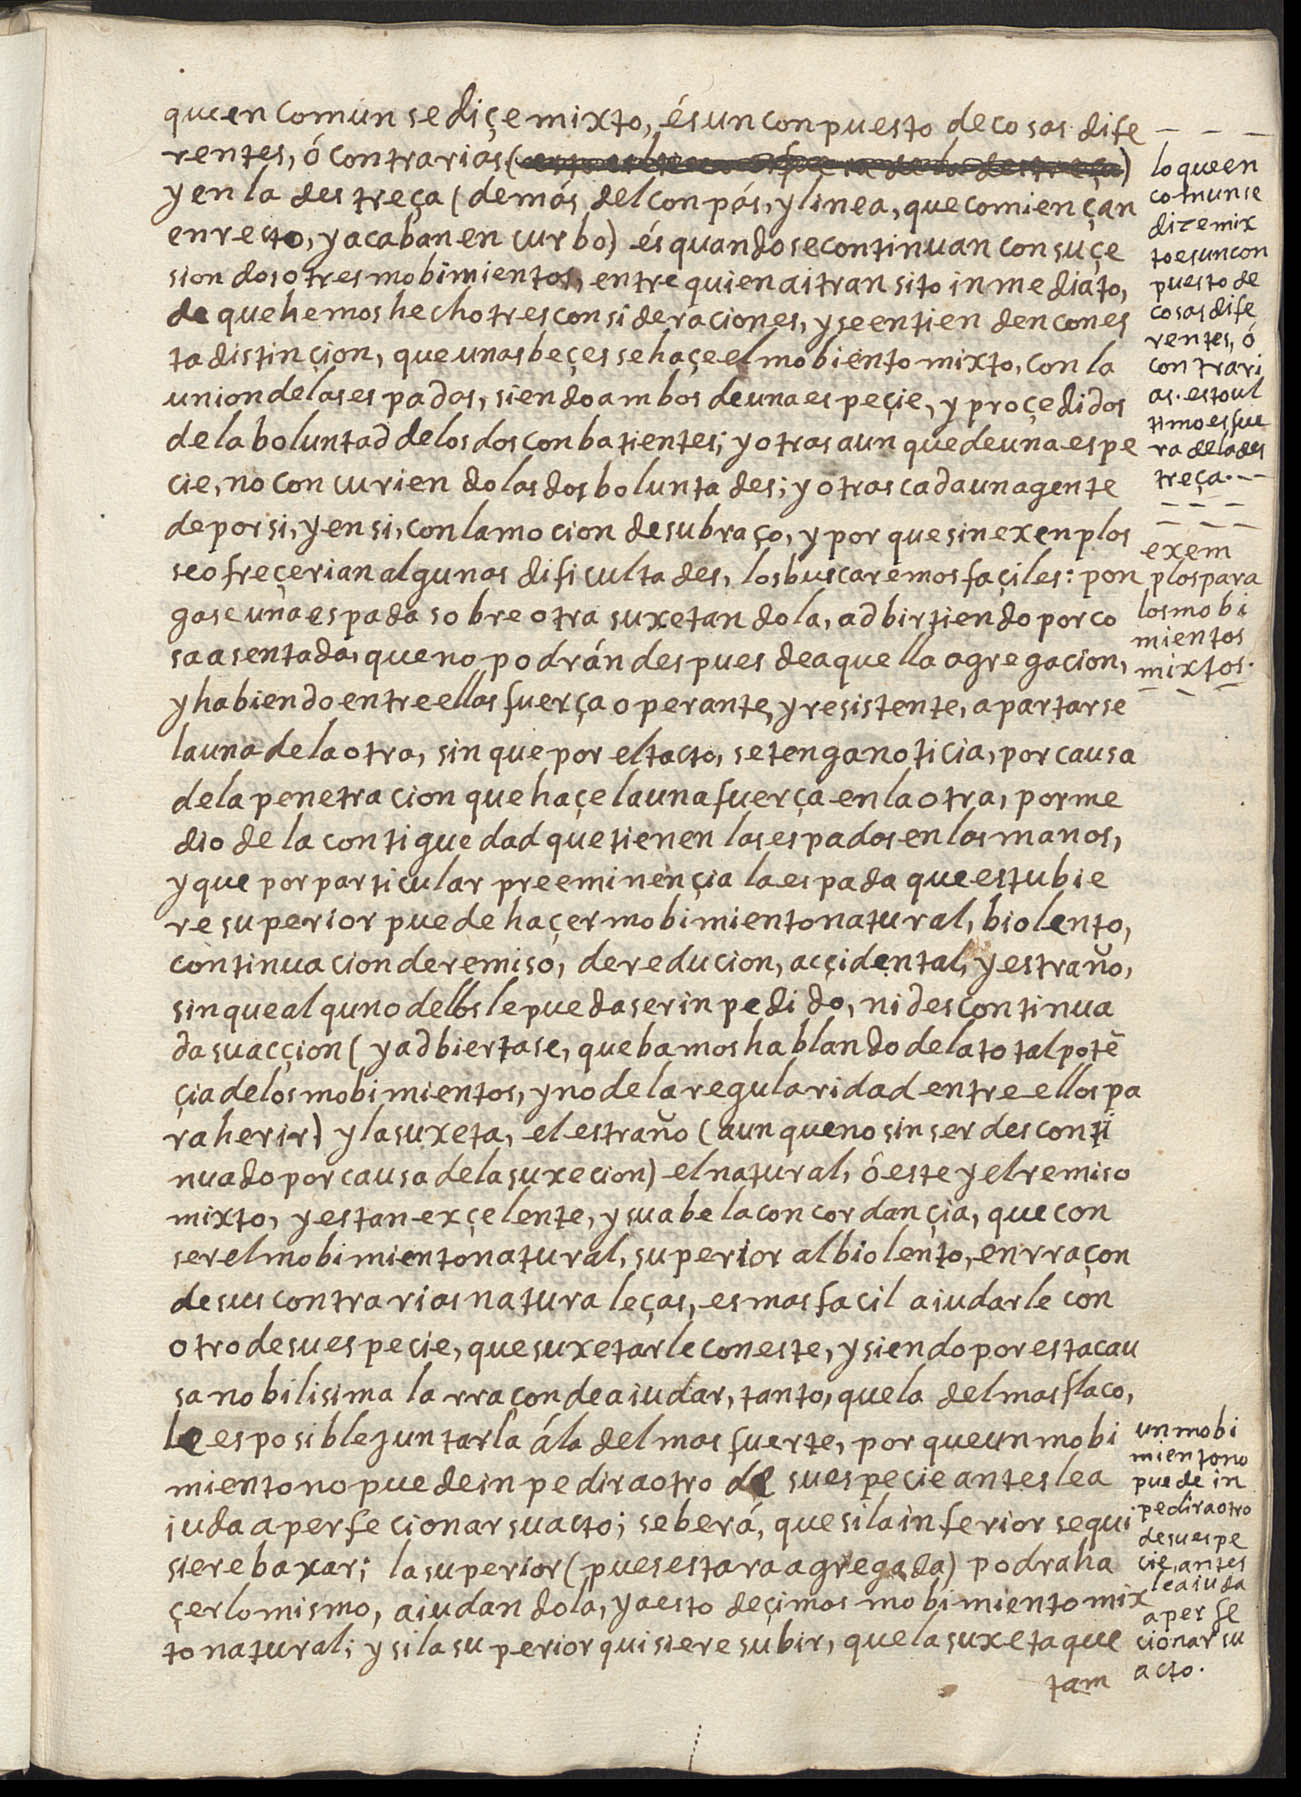 que en comun se diçe mixto, és un conpuesto de cosas dife
rentes, ó contrarias (esto ultimo es fuera de la destreça)
y en la destreça (demás del conpás, y linea, que comiençan
en recto, y acaban en curbo) és quando se continuan con suçe
sion dos o tres mobimientos, entre quien ai transito inmediato,
de que hemos hecho tres consideraciones, y se entienden con es
ta distinçion, que unas beçes se haçe el mobiento mixto, con la
union de las espadas, siendo ambos de una espeçie, y proçedidos
de la boluntad de los dos conbatientes; y otras aunque de una espe
cie, no concurriendo las dos boluntades; y otras cada un agente
de por si, y en si, con la mocion de su braço, y porque sin exenplos
se ofreçerian algunas dificultades, los buscaremos façiles: pon
gase una espada sobre otra suxetandola, adbirtiendo por co
sa asentada, que no podrán despues de aquella agregacion,
y habiendo entre ellas fuerça operante, y resistente, apartarse
la una de la otra, sin que por el tacto, se tenga noticia, por causa
de la penetracion que haçe la una fuerça en la otra, por me
dio de la contiguedad que tienen las espadas en las manos,
y que por particular preeminençia la espada que estubie
re superior puede haçer mobimiento natural, biolento,
continuacion de remiso, de reducion, acçidental, y estraño,
sin que alguno dellos le pueda ser inpedido, ni descontinua
da su acçion (y adbiertase, que bamos hablando de la total potē
çia de los mobimientos, y no de la regularidad entre ellos pa
ra herir) y la suxeta, el estraño (aunque no sin ser desconti
nuado por causa de la suxecion) el natural, ó este y el remiso
mixto, y es tan exçelente, y suabe la concordançia, que con
ser el mobimiento natural, superior al biolento, en rraçon
de sus contrarias naturaleças, es mas facil aiudarle con
otro de su especie, que suxetarle con este, y siendo por esta cau
sa nobilisima la rraçon de aiudar, tanto, que la del mas flaco,
le es posible juntarla á la del mas fuerte, porque un mobi
miento no puede inpedir a otro de su especie antes le a
iuda a perfecionar su acto; se berá, que si la inferior se qui
siere baxar; la superior (pues estara agregada) podra ha
çer lo mismo, aiudandola, y a esto deçimos mobimiento mix
to natural; y si la superior quisiere subir, que la suxeta que
tam
lo que en
comun se
dize mix
to es un con
puesto de
cosas dife
rentes, ó
contrari
as. esto ul
timo es fue
ra de la des
treça.
exem
plos para
los mobi
mientos
mixtos.
un mobi
miento no
puede in
pedir a otro
de su espe
cie, antes
le aiuda
a perfe
cionar su
acto.